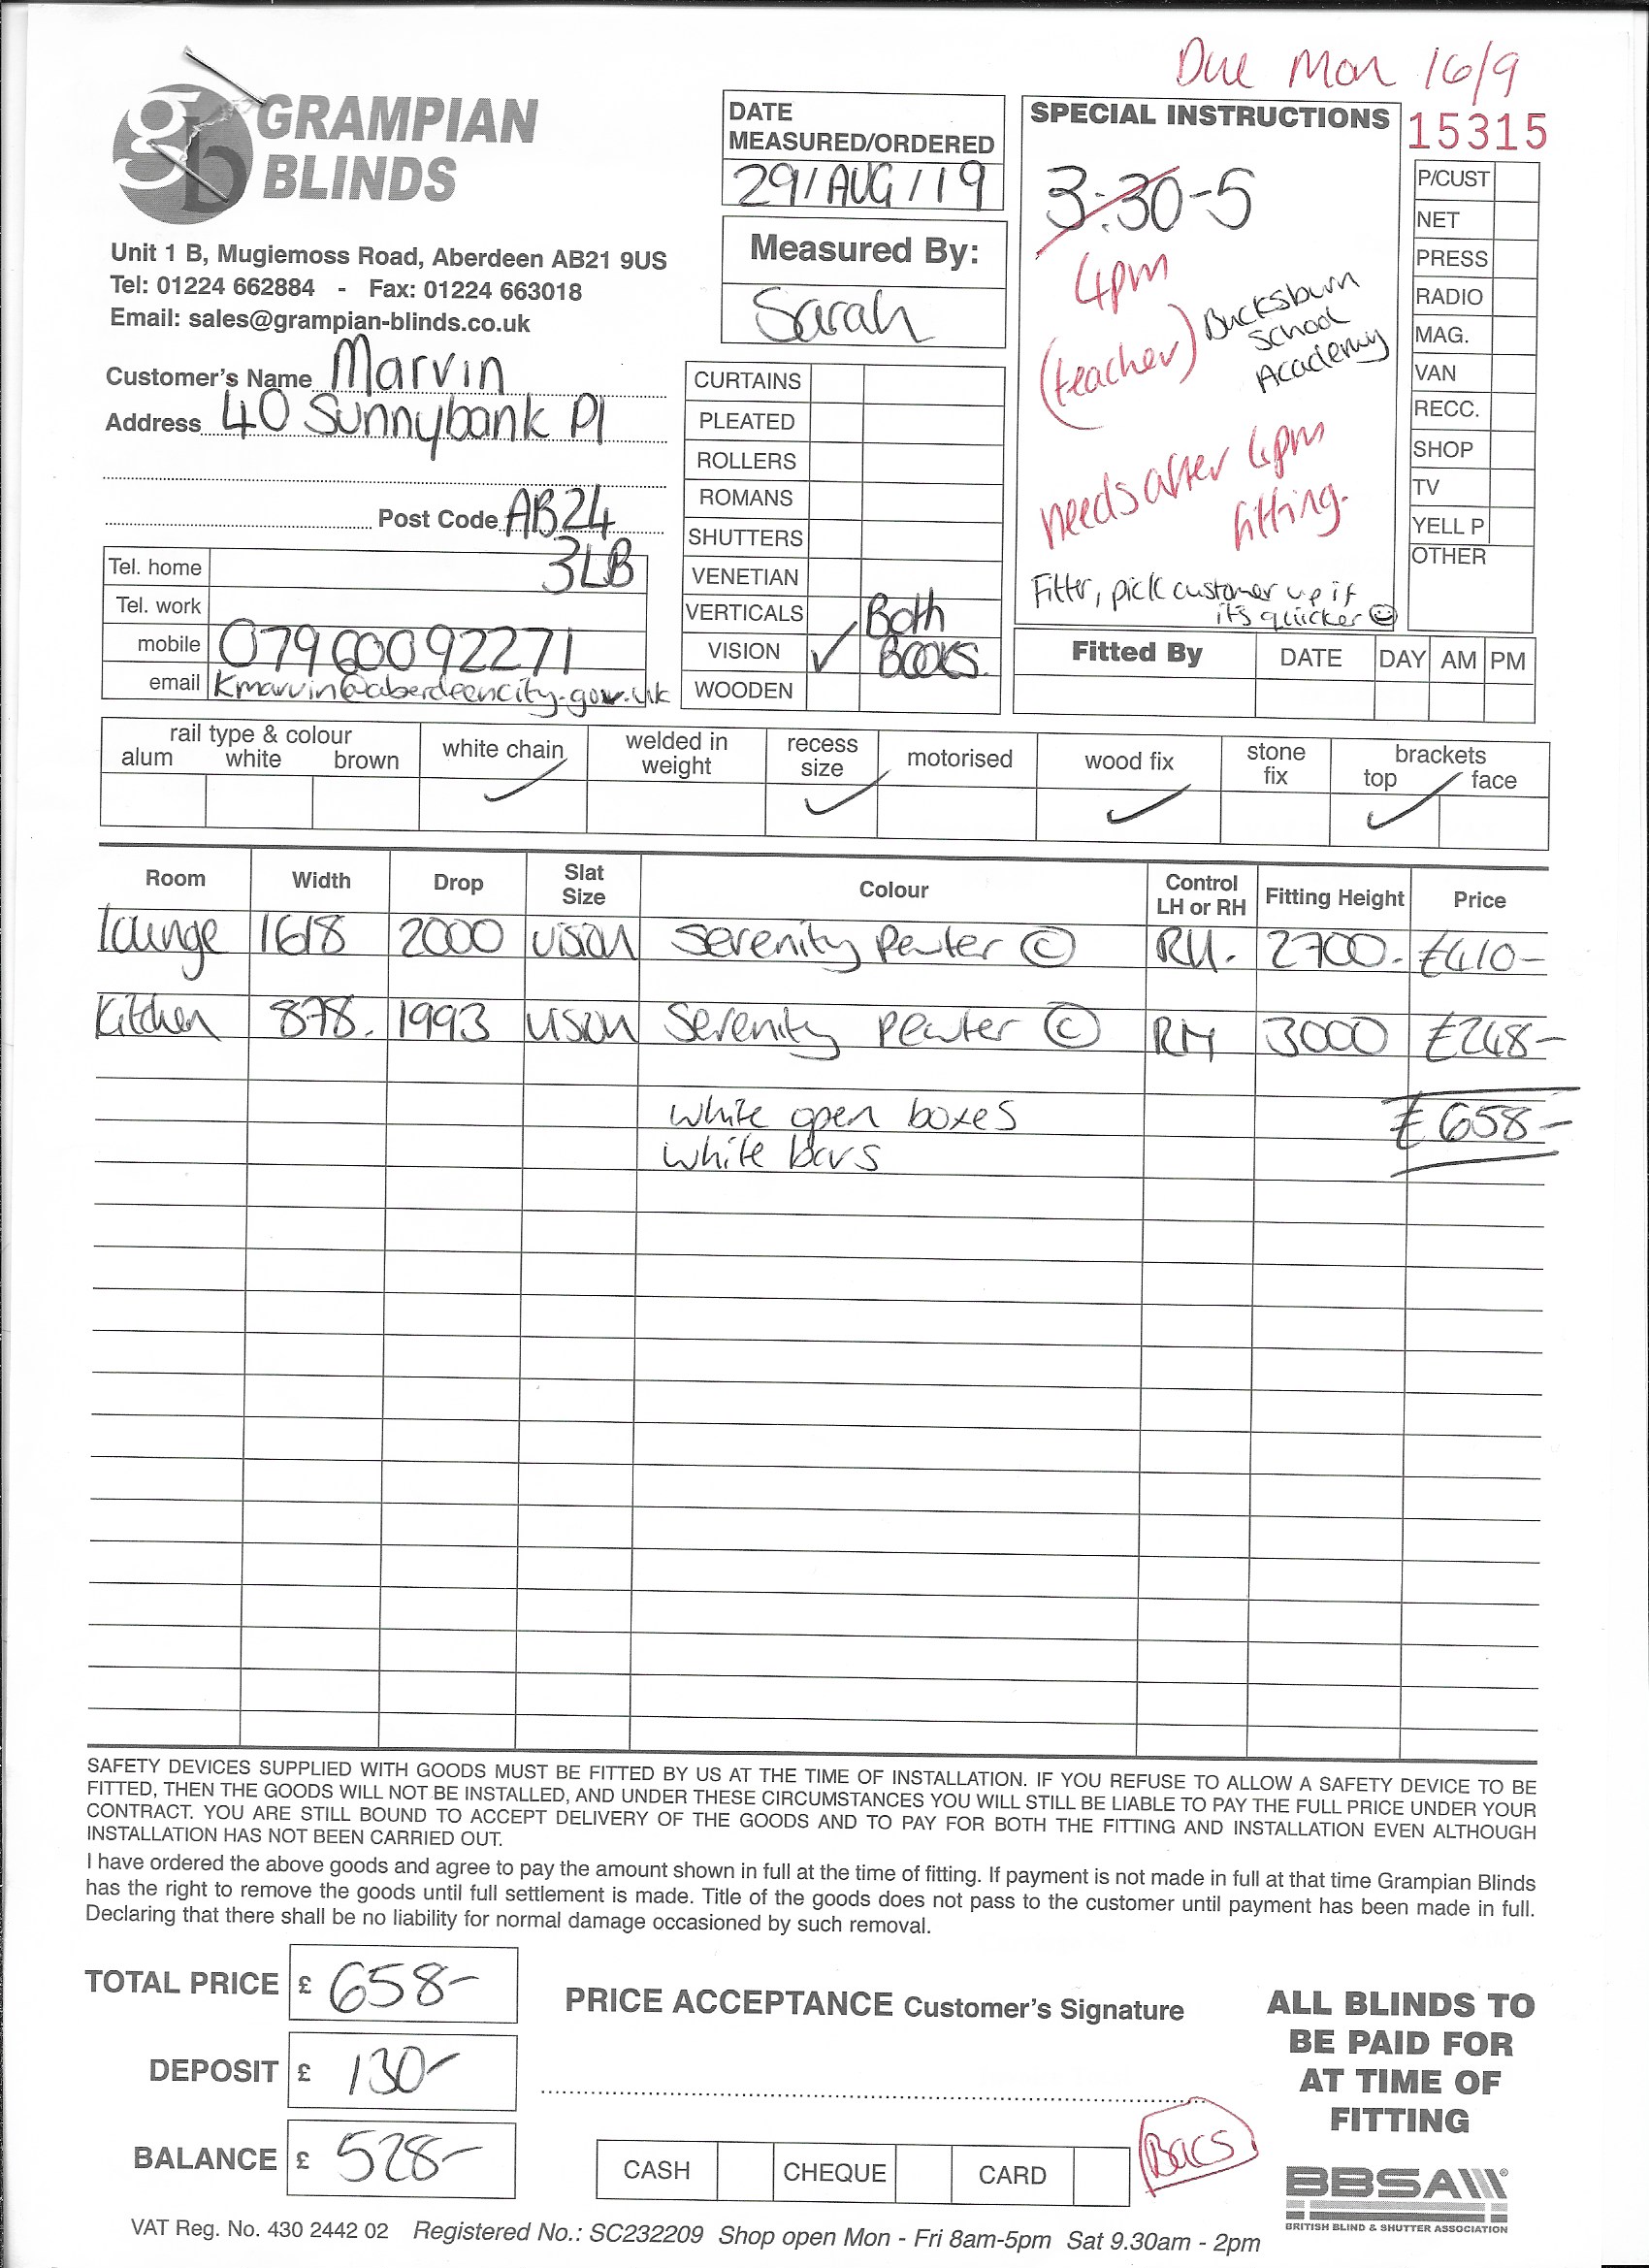 Due Mon 16/9
GRAMPIAN
BLINDS
Unit 1 B, Mugiemoss Road, Aberdeen AB21 9US
Tel: 01224 662884 - Fax: 01224 663018
Email: sales@grampian-blinds.co.uk
Customer's Name Marvin
Address 40 Sunnybank Pl
Post Code AB24
3LB
Tel. home
Tel. work
mobile 07960092271
email Kmarvin@aberdeencity.gov.uk
DATE
MEASURED/ORDERED
29/AUG/19
Measured By:
Sarah
CURTAINS
PLEATED
ROLLERS
ROMANS
SHUTTERS
VENETIAN
VERTICALS
VISION ✓ Both BOOKS.
WOODEN
SPECIAL INSTRUCTIONS
3:30-5
4pm
(teacher) Bucksburn
School
Academy
needs after 4pm
fitting.
Fitter, pick customer up if
it's quicker ☺
15315
P/CUST
NET
PRESS
RADIO
MAG.
VAN
RECC.
SHOP
TV
YELL P
OTHER
Fitted By DATE DAY AM PM
rail type & colour
alum white brown
white chain ✓
welded in
weight
recess
size ✓
motorised
wood fix ✓
stone
fix
brackets
top ✓ face
Room Width Drop Slat Size Colour Control LH or RH Fitting Height Price
lounge 1618 2000 vision Serenity Pewter © RH. 2700. £410-
Kitchen 878. 1993 vision Serenity pewter © RH 3000 £248-
white open boxes £658-
white bars
SAFETY DEVICES SUPPLIED WITH GOODS MUST BE FITTED BY US AT THE TIME OF INSTALLATION. IF YOU REFUSE TO ALLOW A SAFETY DEVICE TO BE
FITTED, THEN THE GOODS WILL NOT BE INSTALLED, AND UNDER THESE CIRCUMSTANCES YOU WILL STILL BE LIABLE TO PAY THE FULL PRICE UNDER YOUR
CONTRACT. YOU ARE STILL BOUND TO ACCEPT DELIVERY OF THE GOODS AND TO PAY FOR BOTH THE FITTING AND INSTALLATION EVEN ALTHOUGH
INSTALLATION HAS NOT BEEN CARRIED OUT.
I have ordered the above goods and agree to pay the amount shown in full at the time of fitting. If payment is not made in full at that time Grampian Blinds
has the right to remove the goods until full settlement is made. Title of the goods does not pass to the customer until payment has been made in full.
Declaring that there shall be no liability for normal damage occasioned by such removal.
TOTAL PRICE £ 658-
DEPOSIT £ 130-
BALANCE £ 528-
PRICE ACCEPTANCE Customer's Signature
CASH CHEQUE CARD Bacs
ALL BLINDS TO
BE PAID FOR
AT TIME OF
FITTING
BBSA
BRITISH BLIND & SHUTTER ASSOCIATION
VAT Reg. No. 430 2442 02 Registered No.: SC232209 Shop open Mon - Fri 8am-5pm Sat 9.30am - 2pm